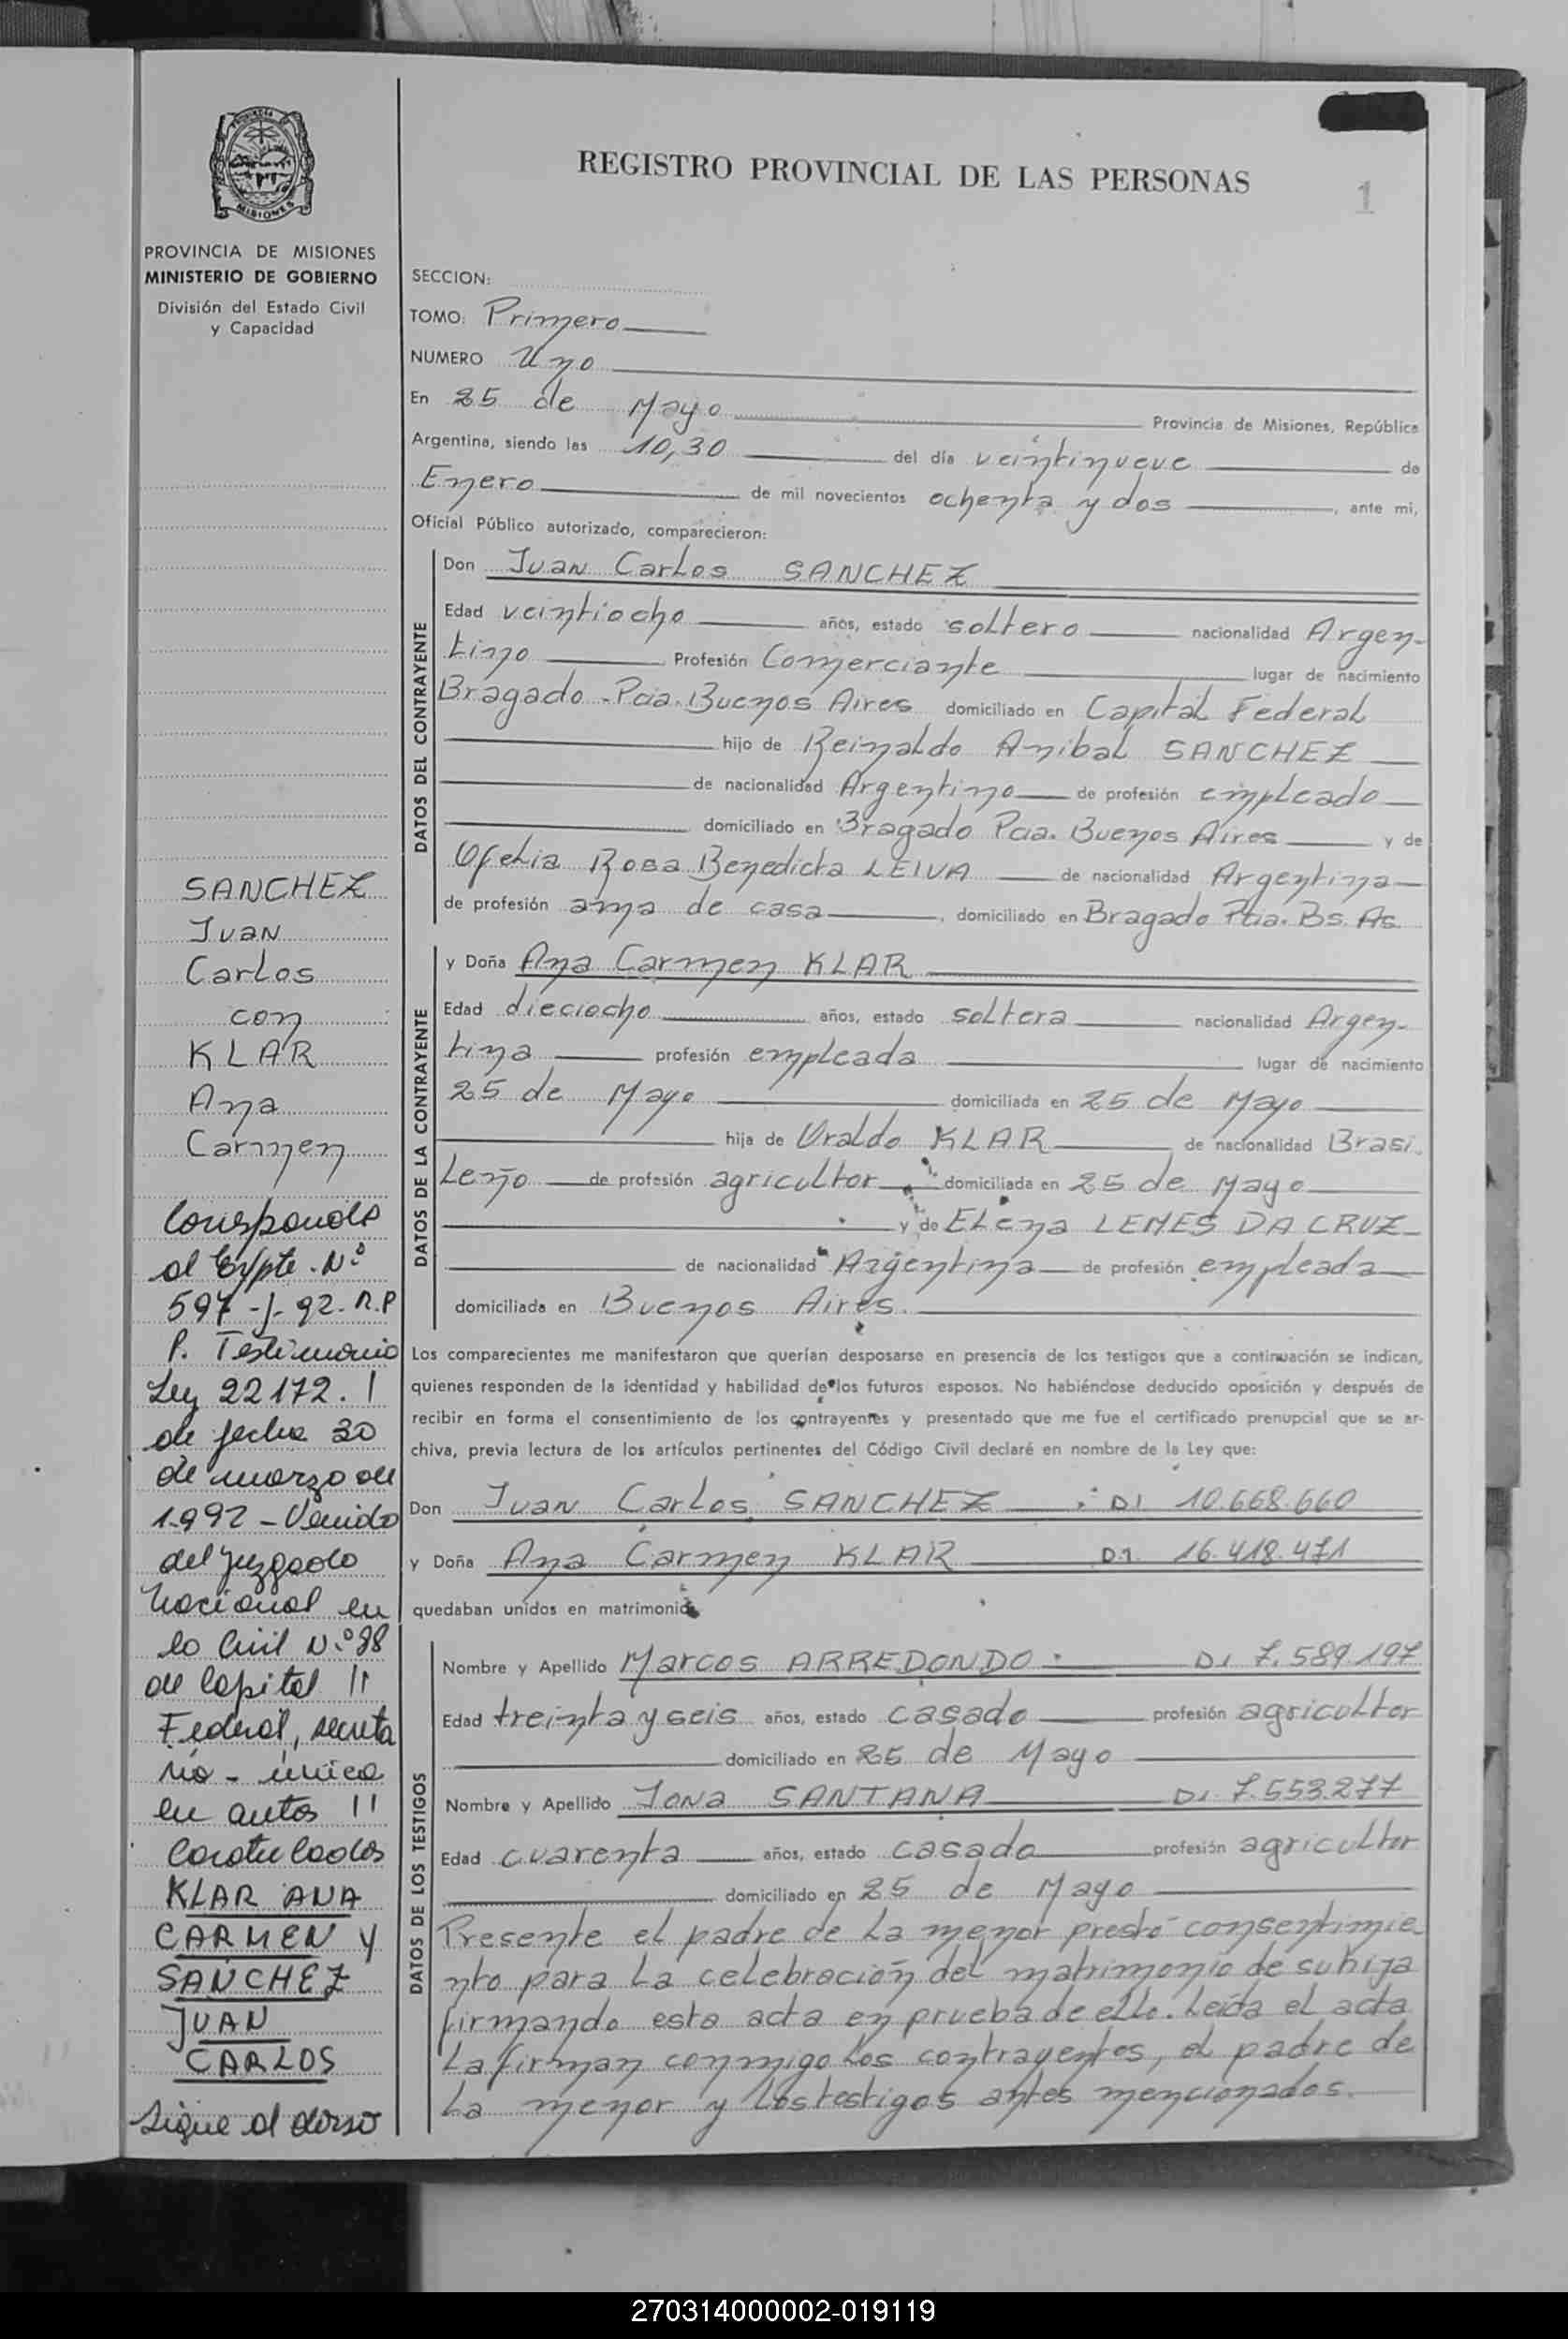 PROVINCIA DE MISIONES
MINISTERIO DE GOBIERNO
División del Estado Civil
y Capacidad
SANCHEZ
Juan
Carlos
con
KLAR
Ana
Carmen
Corresponde
al Expte. N.º
597-J-92. R.P
P. Testimonio
Ley 22172. /
de fecha 30
de marzo de
1.992 - Venido
del juzgado
Nacional en
lo Civil N.º 88
de Capital //
Federal, secreta
ria - única
en autos //
Caratulados
KLAR ANA
CARMEN Y
SANCHEZ
JUAN
CARLOS
Sigue al dorso
REGISTRO PROVINCIAL DE LAS PERSONAS
1
SECCION:
TOMO: Primero
NUMERO Uno
En 25 de Mayo Provincia de Misiones, República
Argentina, siendo las 10,30 del día veintinueve de
Enero de mil novecientos ochenta y dos, ante mi,
Oficial Público autorizado, comparecieron:
DATOS DEL CONTRAYENTE
Don Juan Carlos SANCHEZ
Edad veintiocho años, estado soltero nacionalidad Argen-
tino Profesión Comerciante lugar de nacimiento
Bragado - Pcia. Buenos Aires domiciliado en Capital Federal
hijo de Reinaldo Anibal SANCHEZ
de nacionalidad Argentino de profesión empleado
domiciliado en Bragado Pcia. Buenos Aires y de
Ofelia Rosa Benedicta LEIVA de nacionalidad Argentina
de profesión ama de casa, domiciliado en Bragado Pcia. Bs. As.
DATOS DE LA CONTRAYENTE
y Doña Ana Carmen KLAR
Edad dieciocho años, estado soltera nacionalidad Argen-
tina profesión empleada lugar de nacimiento
25 de Mayo domiciliada en 25 de Mayo
hija de Uraldo KLAR de nacionalidad Brasi-
leño de profesión agricultor domiciliada en 25 de Mayo
y de Elena LEMES DA CRUZ
de nacionalidad Argentina de profesión empleada
domiciliada en Buenos Aires.
Los comparecientes me manifestaron que querían desposarse en presencia de los testigos que a continuación se indican,
quienes responden de la identidad y habilidad de los futuros esposos. No habiéndose deducido oposición y después de
recibir en forma el consentimiento de los contrayentes y presentado que me fue el certificado prenupcial que se ar-
chiva, previa lectura de los artículos pertinentes del Código Civil declaré en nombre de la Ley que:
Don Juan Carlos SANCHEZ DI 10.668.660
y Doña Ana Carmen KLAR D.I. 16.418.471
quedaban unidos en matrimonio
DATOS DE LOS TESTIGOS
Nombre y Apellido Marcos ARREDONDO DI 7.589.197
Edad treinta y seis años, estado casado profesión agricultor
domiciliado en 25 de Mayo
Nombre y Apellido Jona SANTANA DI. 7.553.277
Edad cuarenta años, estado casado profesión agricultor
domiciliado en 25 de Mayo
Presente el padre de la menor prestó consentimie
nto para la celebración del matrimonio de su hija
firmando esta acta en prueba de ello. Leída el acta
la firman conmigo los contrayentes, el padre de
la menor y los testigos antes mencionados.
270314000002-019119